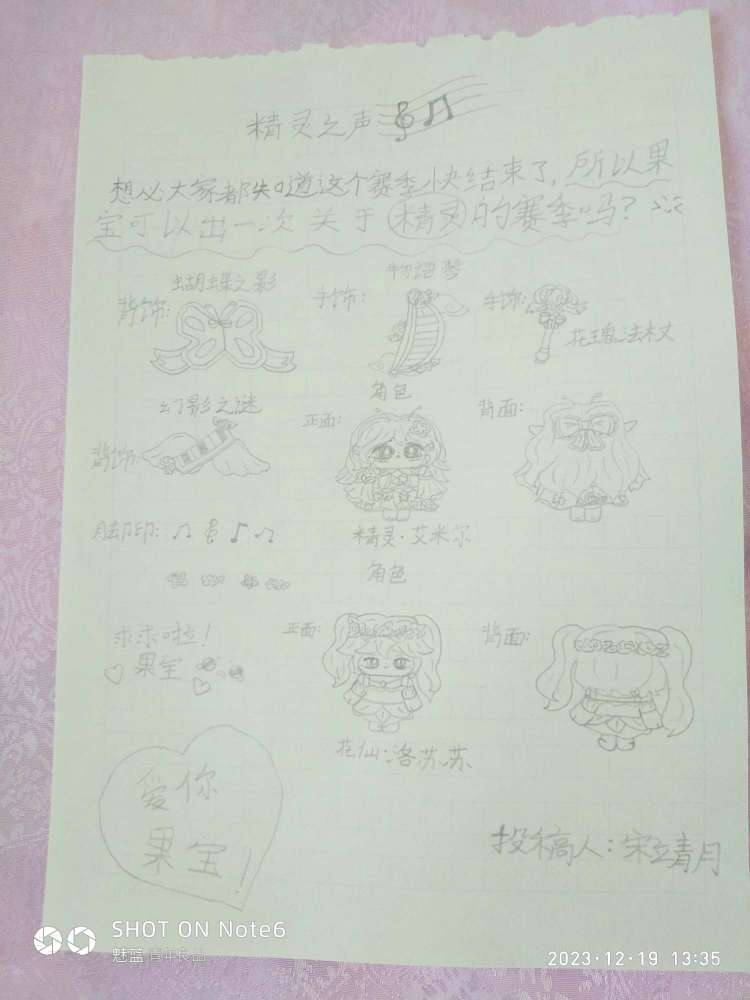 精灵之声
想必大家都知道这个赛季快结束了,所以果
宝可以出一次关于精灵的赛季吗?
蝴蝶之影
背饰:
物语琴
手饰:
手饰:
花瑰法杖
幻影之谜
背饰:
角色
正面:
背面:
脚印:
精灵·艾米尔
角色
求求啦!
果宝
正面:
背面:
花仙:洛苏苏
爱你
果宝!
投稿人:宋靖月
SHOT ON Note6
魅蓝 青年良品
2023·12·19 13:35